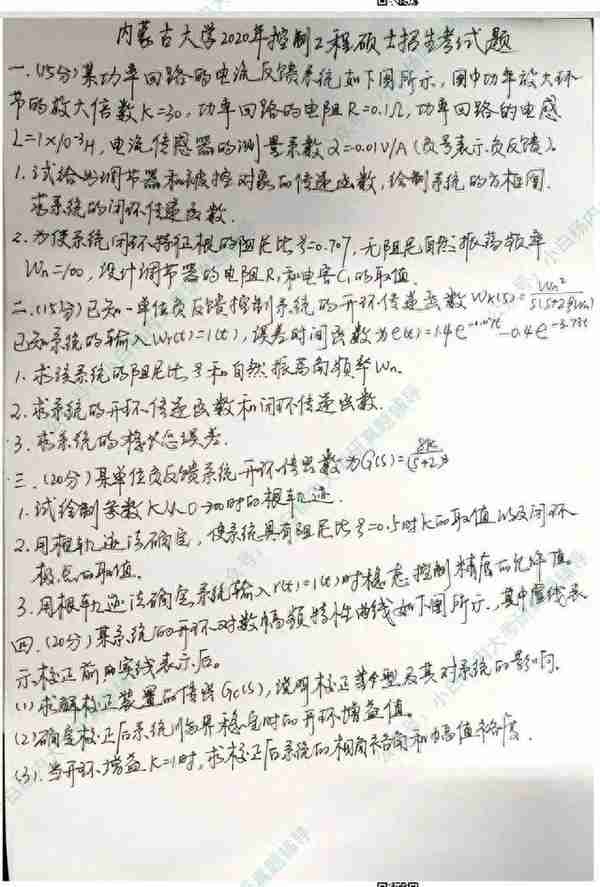 内蒙古大学2020年控制工程硕士招生考试题
一.(15分)某功率回路的电流反馈系统如下图所示,图中功率放大环
节的放大倍数K=30,功率回路的电阻R=0.1Ω,功率回路的电感
L=1×10⁻³H,电流传感器的测量系数α=0.01V/A(负号表示负反馈)。
1.试给出调节器和被控对象的传递函数,绘制系统的方框图.
求系统的闭环传递函数.
2.为使系统闭环特征根的阻尼比ξ=0.707,无阻尼自然振荡频率
Wn=100,设计调节器的电阻R₁和电容C₁的取值.
二.(15分)已知一单位负反馈控制系统的开环传递函数Wk(s)=Wn²/S(S+2ξWn)
已知系统的输入Wr(t)=1(t),误差时间函数为e(t)=1.4e -0.4e^-3.73t
1.求该系统的阻尼比ξ和自然振荡角频率Wn.
2.求系统的开环传递函数和闭环传递函数.
3.求系统的稳态误差.
三.(20分)某单位负反馈系统开环传函数为G(S)=8K/(S+2)³
1.试绘制参数K从0→∞时的根轨迹.
2.用根轨迹法确定,使系统具有阻尼比ξ=0.5时K的取值以及闭环
极点的取值.
3.用根轨迹法确定系统输入r(t)=1(t)时稳态控制精度的允许值。
四.(20分)某系统的开环对数幅频特性曲线如下图所示,其中虚线表
示校正前的实线表示后。
(1)求解校正装置的传函Gc(S),说明校正 类型及其对系统的影响。
(2)确定校正后系统临界稳定时的开环增益值。
(3).当开环增益K=1时,求校正后系统的相角裕角和幅值裕度.